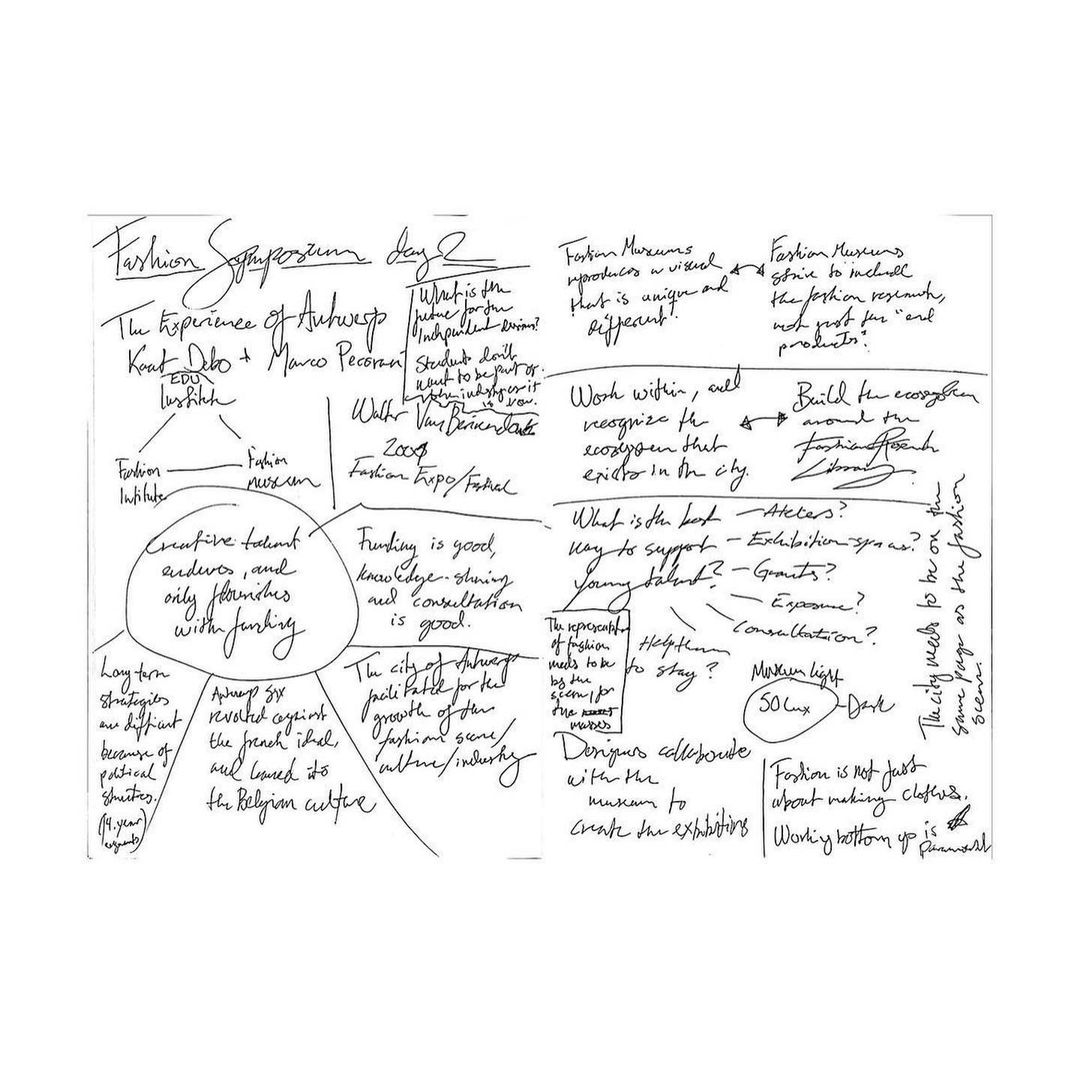 Fashion Symposium day 2
The Experience of Antwerp
Kaat Debo + Marco Pecorari
EDU
Institute
Fashion
Institute
Fashion
museum
What is the
future for the
Independent
Students don't
want to be part of
industry as it
is now.
Walter Van Beirendonck
Fashion Expo/Festival
Creative talent
endures, and
only flourishes
with funding
Funding is good,
knowledge-sharing
and consultation
is good.
Long term
strategies
are difficult
because of
political
structures.
(4-year
segments)
Antwerp Six
revolted against
the french ideal,
and leaned into
the Belgian culture
The city of Antwerp
facilitated for the
growth of the
fashion scene/
culture/industry
Fashion Museums
reproduces a visual
that is unique and
different.
Fashion Museums
strive to include
the fashion research,
not just the "end
products".
Work within, and
recognize the
ecosystem that
exists in the city.
Build the ecosystem
around the
Fashion Research
Library
What is the best
way to support
young talent?
- Ateliers?
- Exhibition-spaces?
- Grants?
- Exposure?
Consultation?
Help them
to stay?
The representation
of fashion
needs to be
by the
scene, for
the
masses
Museum light
50 lux - Dark
The city needs to be on the
same page as the fashion
scene.
Designers collaborate
with the
museum to
create the exhibitions
Fashion is not just
about making clothes.
Working bottom up is
paramount